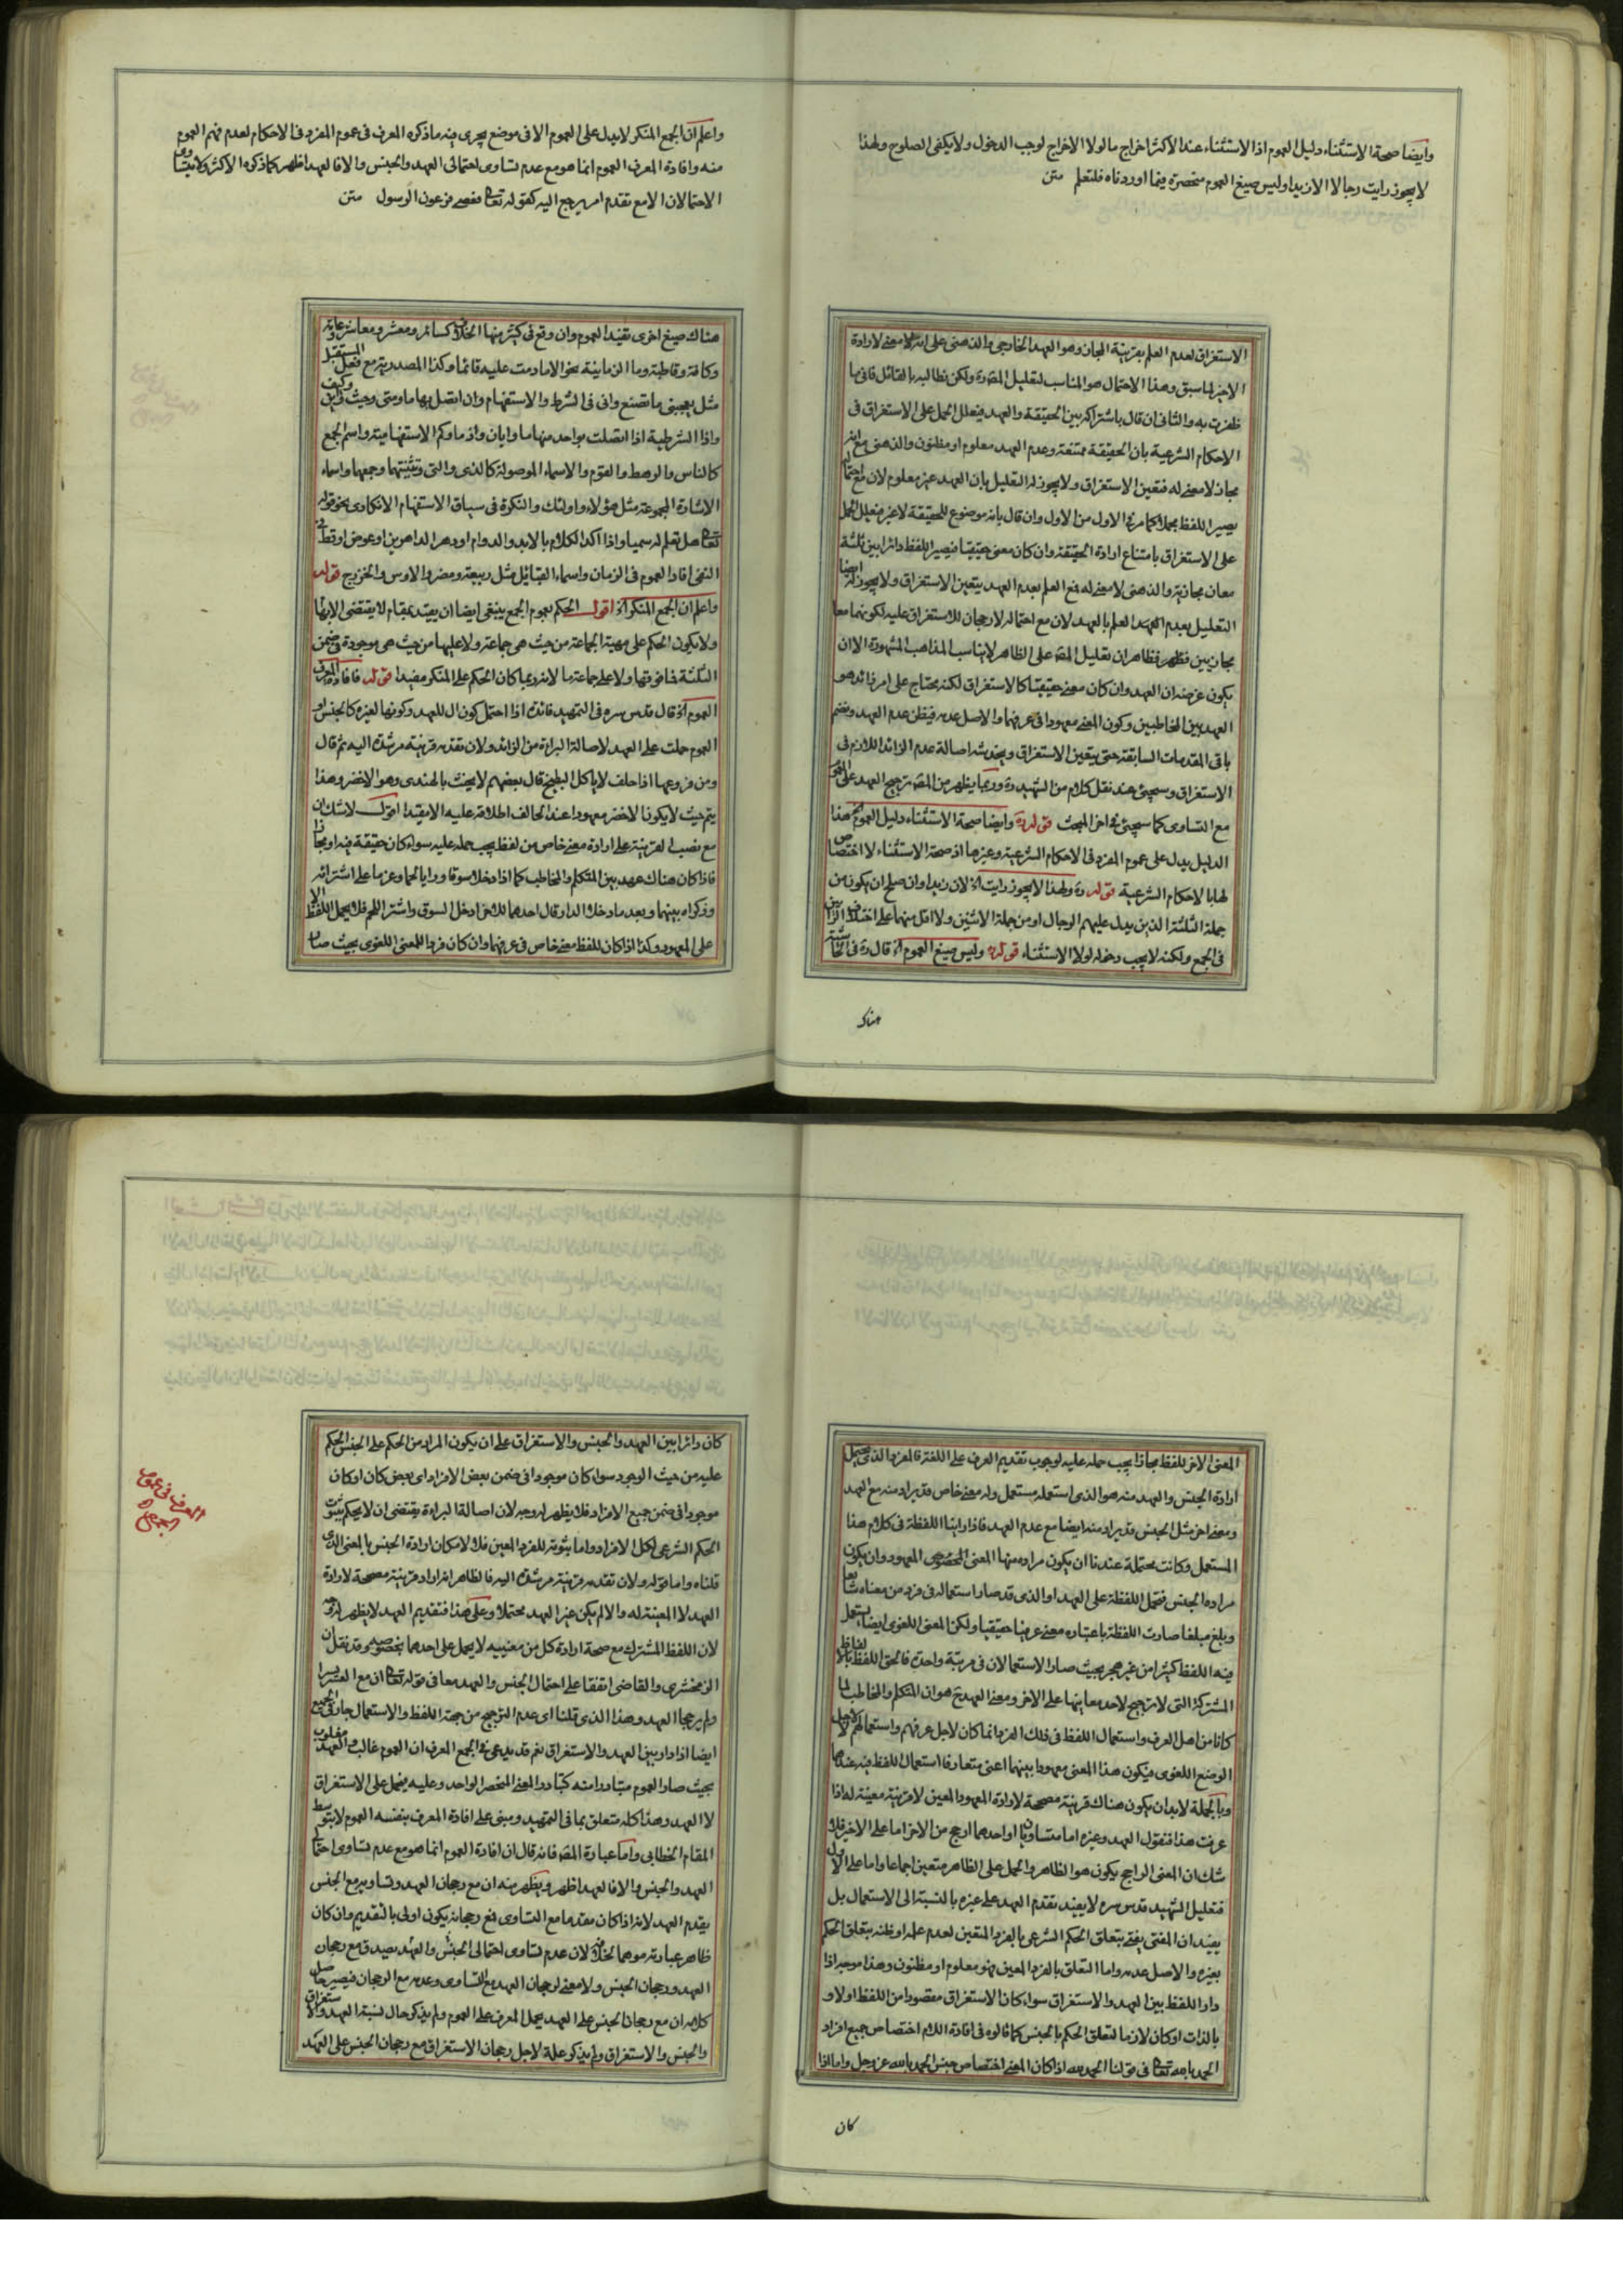 وايضا صحة الاستثناء دليل العموم اذ الاستثناء عند الاكثر اخراج ما لولا الاخراج لوجب الدخول ولا يكفى الصلوح ولهذا
لا يجوز رايت رجالا الا زيدا وليس صيغ العموم منحصرة فيما اوردناه فلتعلم متن
الاستغراق لعدم العلم بقرينة المجاز وهو العهد الخارجى والذهنى على انه لا معنى لارادة
الاخير لما سبق وهذا الاحتمال هو المناسب لتعليل المص ره ولكن نطالبه بالقائل فانى ما
ظفرت به والثانى ان قال باشتراكه بين الحقيقة والعهد فيعلل الحمل على الاستغراق فى
الاحكام الشرعية بان الحقيقة ممتنعة وعدم العهد معلوم او مظنون والذهنى مع انه
مجاز لا معنى له فتعين الاستغراق ولا يجوز له التعليل بان العهد غير معلوم لان مع احتماله
يصير اللفظ مجملا كما مر فى الاول من الاول وان قال بانه موضوع للحقيقة لا غير فيعلل الحمل
على الاستغراق بامتناع ارادة الحقيقة وان كان معنى حقيقيا فيصير اللفظ دائرا بين ثلثة
معان مجازية والذهنى لا معنى له فمع العلم بعدم العهد يتعين الاستغراق ولا يجوز له ايضا
التعليل بعدم العلم بالعهد لان مع احتماله لا رجحان للاستغراق عليه لكونهما معا
مجازيين فظهر فظاهر ان تعليل المص على الظاهر لا يناسب المذاهب المشهورة الا ان
يكون غرضه ان العهد وان كان معنى حقيقيا كالاستغراق لكنه محتاج على امر زائد هو
العهد بين المخاطبين وكون المعنى معهودا فى عرفهما والاصل عدمه فيظن عدم العهد وبضم
باقى المقدمات السابقة حتى يتعين الاستغراق ويخدشه اصالة عدم الزائد اللازم فى
الاستغراق وسيجئ عند نقل كلام من الشهيد ره وربما يظهر من المص ترجيح العهد على العموم
مع التساوى كما سيجئ فى اخر المبحث قوله ره وايضا صحة الاستثناء دليل العموم الخ هذا
الدليل يدل على عموم المفرد فى الاحكام الشرعية وغيرها اذ صحة الاستثناء لا اختصاص
لها بالاحكام الشرعية قوله ره ولهذا لا يجوز رايت الخ لان زيدا وان صلح ان يكون من
جملة الثلثة الذين يدل عليهم الرجال او من جملة الاثنين ولا اقل منهما على اختلاف الرأيين
فى الجمع ولكنه لا يجب دخوله لولا الاستثناء قوله ره وليس صيغ العموم الخ قال ره فى الحاشية
هناك
واعلم ان الجمع المنكر لا يدل على العموم الا فى موضع يجرى فيه ما ذكره المعرف فى عموم المفرد فى الاحكام لعدم فهم العموم
منه وافادة المعرف العموم انما هو مع عدم تساوى احتمالى العهد والجنس والا فالعهد اظهر كما ذكره الاكثر ولا يتساوى
الاحتمالان الا مع تقدم امر يرجع اليه كقوله تعالى فعصى فرعون الرسول متن
هناك صيغ اخرى تفيد العموم وان وقع فى كثير منها الخلاف كسائر ومعشر ومعاشر وعامة
وكافة وقاطبة وما الزمانية نحو الا ما دمت عليه قائما وكذا المصدرية مع فعل المستقبل
مثل يعجبنى ما تصنع وانى فى الشرط والاستفهام وان اتصل بها ما ومتى وحيث وكيف واين
واذا الشرطية اذا اتصلت بواحد منها ما وايان واذ ما وكم الاستفهامية واسم الجمع
كالناس والرهط والقوم والاسماء الموصولة كالذى والتى وتثنيتهما وجمعهما واسماء
الاشارة المجموعة مثل هؤلاء واولئك والنكرة فى سياق الاستفهام الانكارى نحو قوله
تعالى هل تعلم له سميا واذا اكد الكلام بالابد والدوام او دهر الداهرين او عوض او قط فى
النفى افاد العموم فى الزمان واسماء القبائل مثل ربيعة ومضر والاوس والخزرج قوله
واعلم ان الجمع المنكر الخ اقول الحكم بعموم الجمع ينبغى ايضا ان يقيد بمقام لا يقتضى الابهام
ولا يكون الحكم على مهية الجماعة من حيث هى جماعة ولا عليها من حيث هى موجودة فى ضمن
الثلثة فما فوقها ولا على جماعة ما لانه ربما كان الحكم على المنكر مفيدا قوله فافادة المعرف
العموم الخ قال قدس سره فى التمهيد فائدة اذا احتمل كون ال للعهد وكونها لغيره كالجنس او
العموم حملت على العهد لاصالة البراءة من الزائد ولان تقدمه قرينة مرشدة اليه ثم قال
ومن فروعها اذا حلف لا ياكل البطيخ قال بعضهم لا يحنث بالهندى وهو الاخضر وهذا
يتم حيث لا يكون الاخضر معهودا عند الحالف اطلاقه عليه الا مقيدا اقول لا شك ان
مع نصب القرينة على ارادة معنى خاص من لفظ يجب حمله عليه سواء كان حقيقة فيه او مجازا
فاذا كان هناك عهد بين المتكلم والمخاطب كما اذا دخلا سوقا ورايا لحما وعزما على اشترائه
وذكراه بينهما وبعد ما دخلا الدار قال احدهما للاخر ادخل السوق واشتر اللحم فلا يحمل اللفظ الا
على المعهود وكذا اذا كان للفظ معنى خاص فى عرفهما وان كان فردا للمعنى اللغوى بحيث صار
المعنى الاخر للفظ مجازا يجب حمله عليه لوجوب تقديم العرف على اللغة فالمفرد الذى يحتمل
ارادة الجنس والعهد منه هو الذى استعمله مستعمل وله معنى خاص قد يراد منه مع العهد
ومعنى اخر مثل الجنس قد يراد منه ايضا مع عدم العهد فاذا راينا اللفظة فى كلام هذا
المستعمل وكانت محتملة عندنا ان يكون مراده منها المعنى المخصوص المعهود وان يكون
مراده الجنس فتحمل اللفظة على العهد او الذى قد صار استعماله فى فرد من معناه شائعا
وبلغ مبلغا صارت اللفظة باعتباره معنى عرفيا حقيقيا ولكن المعنى اللغوى ايضا يستعمل
فيه اللفظ كثيرا من غير هجر بحيث صار الاستعمالان فى مرتبة واحدة فالحق اللفظ بالالفاظ
المشتركة التى لا ترجيح لاحد معانيها على الاخر ومعنى العهد ح هو ان المتكلم والمخاطب لما
كانا من اهل العرف واستعمال اللفظ فى ذلك الفرد انما كان لاجل عرفهم واستعمالهم لا لاجل
الوضع اللغوى فيكون هذا المعنى معهودا بينهما اعنى متعارفا استعمال اللفظ فيه عندهما
وبالجملة لا بد ان يكون هناك قرينة مصححة لارادة المعهود المعين لا قرينة معينة له اذا
عرفت هذا فنقول العهد وغيره اما متساويان او احدهما ارجح من الاخر اما على الاخير فلا
شك ان المعنى الراجح يكون هو الظاهر والحمل على الظاهر متعين اجماعا واما على الاول
فتعليل الشهيد قدس سره لا يفيد تقدم العهد على غيره بالنسبة الى الاستعمال بل
يفيد ان المفتى يفتى بتعلق الحكم الشرعى بالفرد المتعين لعدم علمه او ظنه بتعلق الحكم
بغيره والاصل عدمه واما التعلق بالفرد المعين فهو معلوم او مظنون وهذا موجه اذا
دار اللفظ بين العهد والاستغراق سواء كان الاستغراق مقصودا من اللفظ اولا و
بالذات او كان لازما لتعلق الحكم بالجنس كما قالوه فى افادة اللام اختصاص جميع افراد
الحمد بالله تعالى فى قولنا الحمد لله اذا كان المعنى اختصاص جنس الحمد بالله عز وجل واما اذا
كان
كان دائرا بين العهد والجنس والاستغراق على ان يكون المراد من الحكم على الجنس الحكم
عليه من حيث الوجود سواء كان موجودا فى ضمن بعض الافراد اى بعض كان او كان
موجودا فى ضمن جميع الافراد فلا يظهر له وجه لان اصالة البراءة يقتضى ان لا يحكم بثبوت
الحكم الشرعى لكل الافراد واما ثبوته للفرد المعين فلا لامكان ارادة الجنس بالمعنى الذى
قلناه واما قوله ولان تقدمه قرينة مرشدة اليه فالظاهر انه اراد قرينة مصححة لارادة
العهد لا المعينة له والا لم يكن غير العهد محتملا وعلى هذا فتقديم العهد لا يظهر له وجه
لان اللفظ المشترك مع صحة ارادة كل من معنييه لا يحمل على احدهما بخصوصه وقد نقل ان
الزمخشرى والقاضى اتفقا على احتمال الجنس والعهد معا فى قوله تعالى ان مع العسر يسرا
ولم يرجحا العهد وهذا الذى قلنا اى عدم الترجيح من جهة اللفظ والاستعمال جار فى الجميع
ايضا اذا دار بين العهد والاستغراق نعم قد يدعى فى الجمع المعرف ان العموم غالب العهد مغلوب
بحيث صار العموم متبادرا منه كتبادر المعنى المنحصر الواحد وعليه فيحمل على الاستغراق
لا العهد وهذا كله متعلق بما فى التمهيد ومبنى على افادة المعرف بنفسه العموم لا بتوسط
المقام الخطابى واما عبارة المص فانه قال ان افادة العموم انما هو مع عدم تساوى احتمالى
العهد والجنس والا فالعهد اظهر ويظهر منه ان مع رجحان العهد وتساويه مع الجنس
يقدم العهد لانه اذا كان مقدما مع التساوى فمع رجحانه يكون اولى بالتقديم وان كان
ظاهر عبارته موهما لخلافه لان عدم تساوى احتمالى الجنس والعهد يصدق مع رجحان
العهد ورجحان الجنس ولا معنى لرجحان العهد مع التساوى وعدمه مع الرجحان فيصير حاصل
كلامه ان مع رجحان الجنس على العهد يحمل المعرف على العموم ولم يذكر حال نسبة العهد والاستغراق
والجنس والاستغراق ولم يذكر علة لاجل رجحان الاستغراق مع رجحان الجنس على العهد